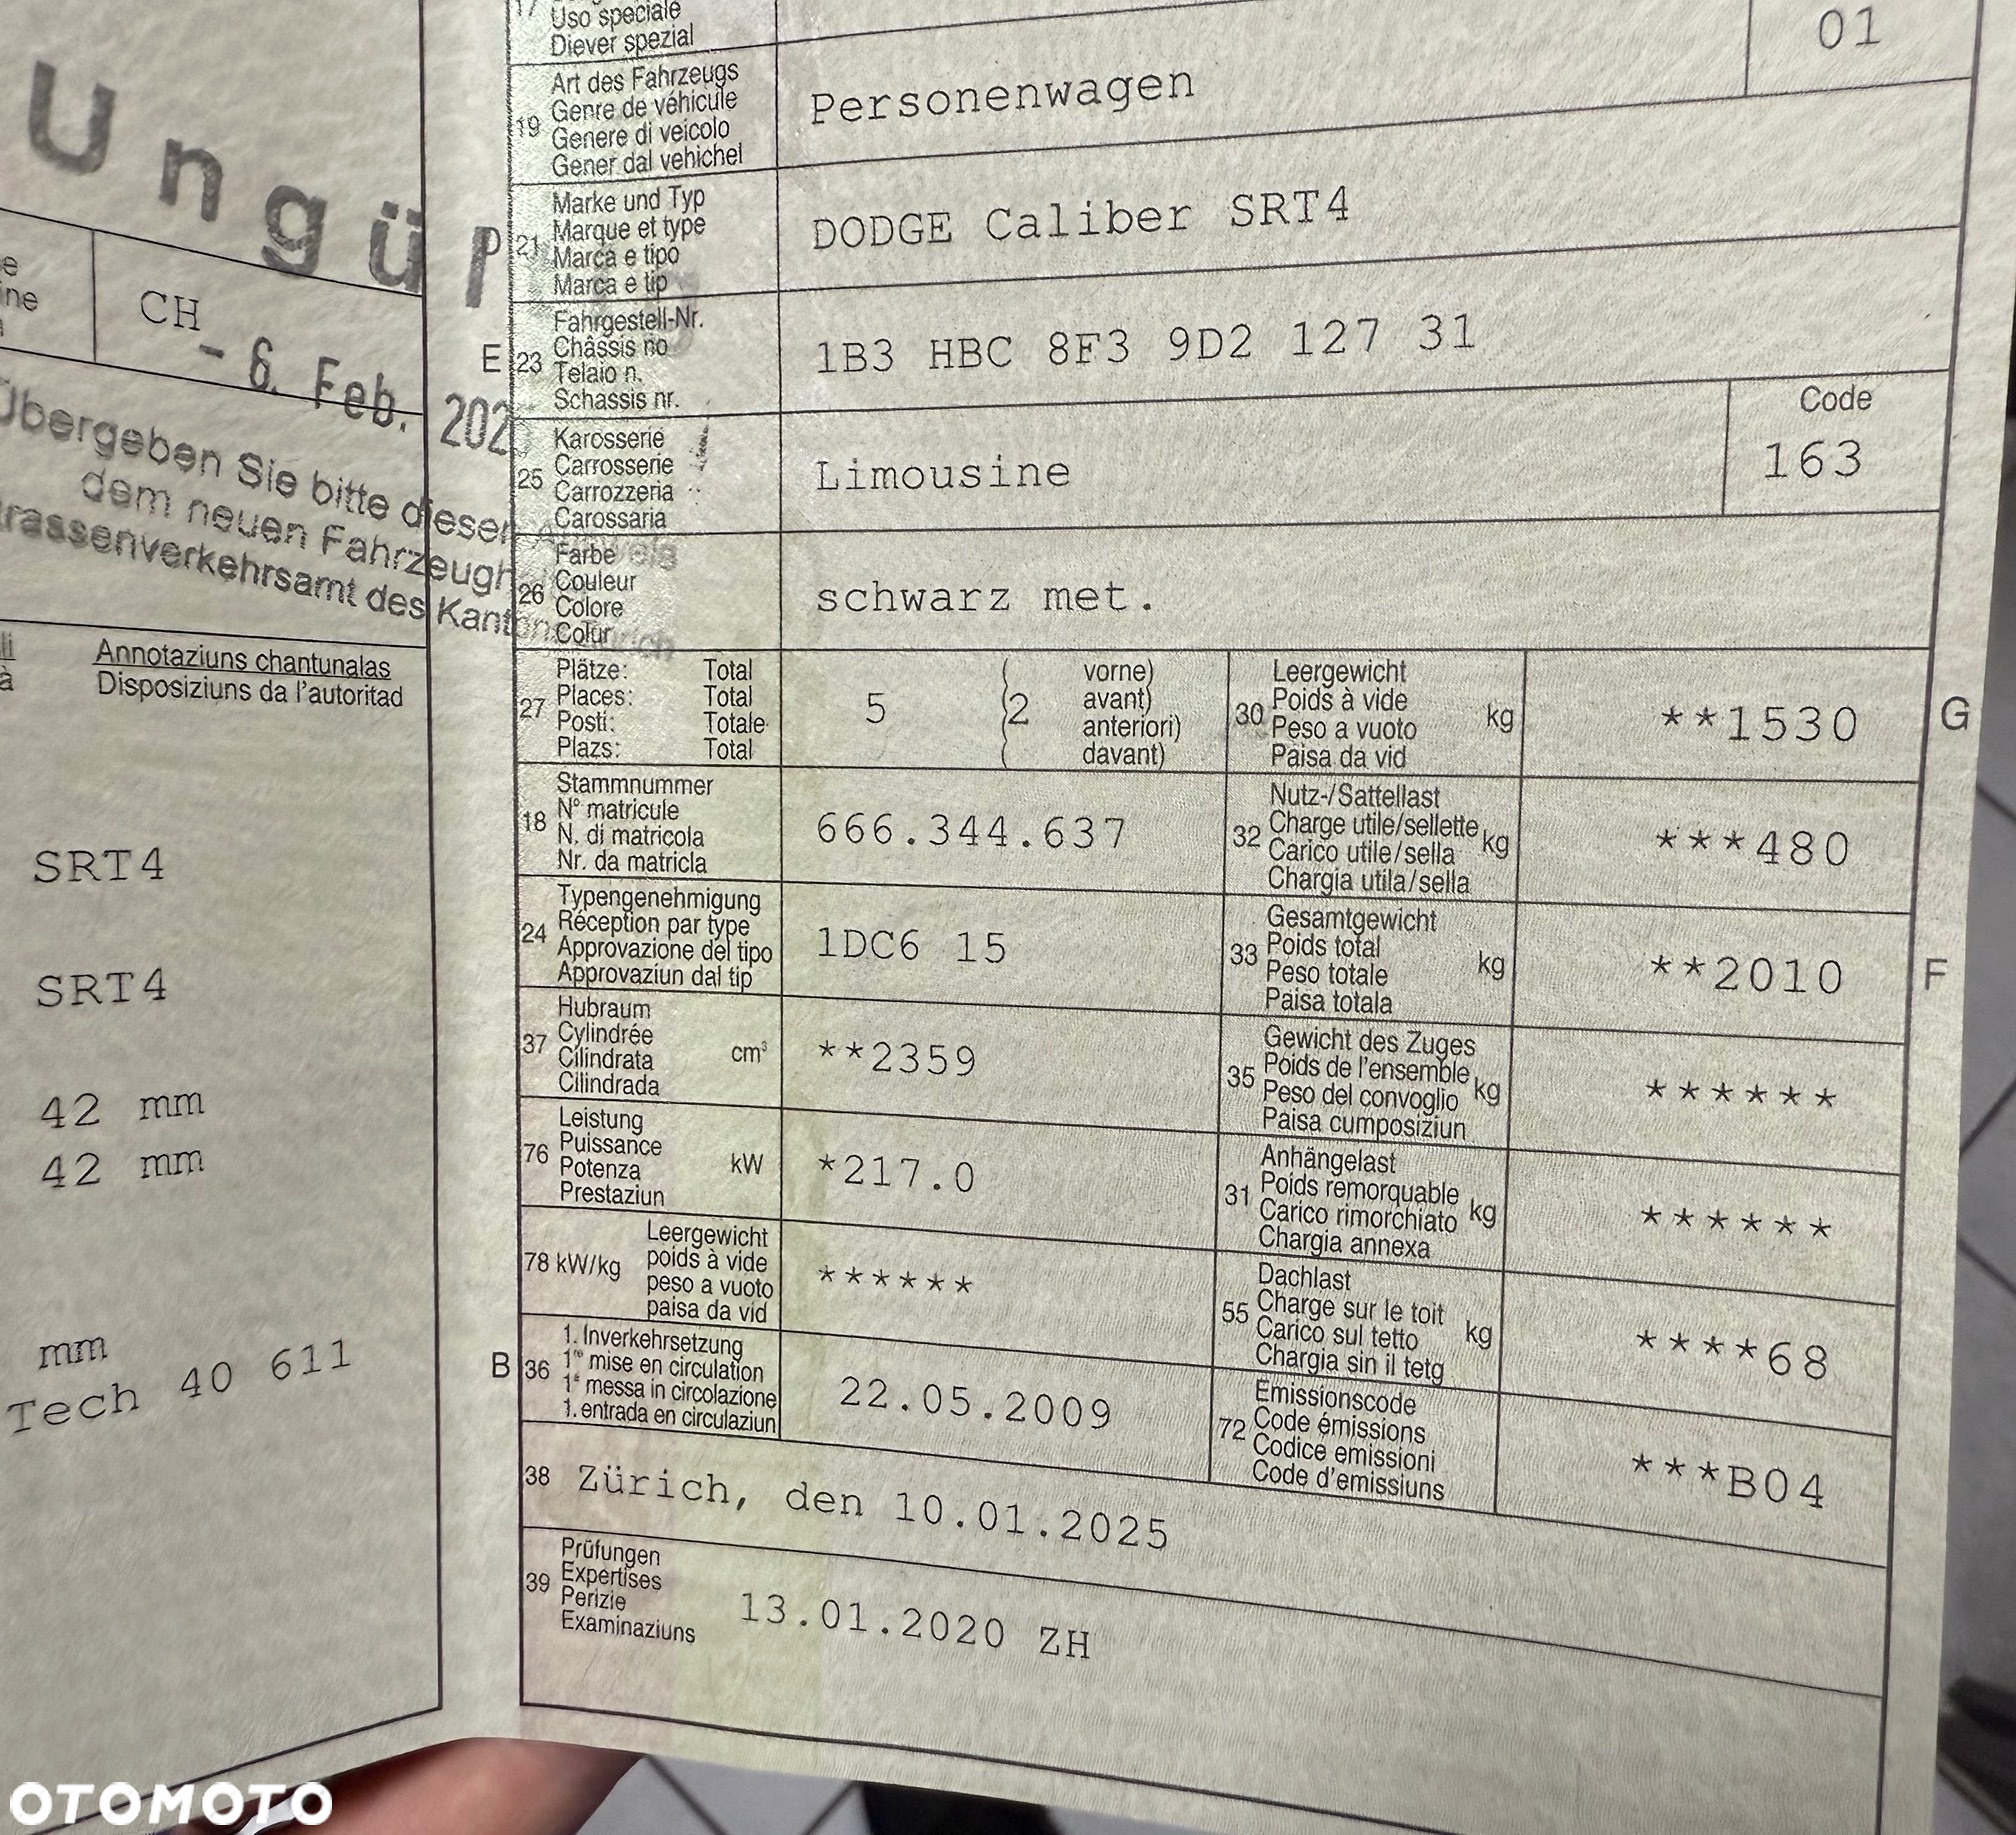 Ungü
CH
- 6. Feb. 202
Übergeben Sie bitte diesen
dem neuen Fahrzeugh
rassenverkehrsamt des Kant
Annotaziuns chantunalas
Disposiziuns da l'autoritad
SRT4
SRT4
42 mm
42 mm
mm
Tech 40 611
17
Uso speciale
Diever spezial
01
19
Art des Fahrzeugs
Genre de véhicule
Genere di veicolo
Gener dal vehichel
Personenwagen
D 21
Marke und Typ
Marque et type
Marca e tipo
Marca e tip
DODGE Caliber SRT4
E 23
Fahrgestell-Nr.
Châssis no
Telaio n.
Schassis nr.
1B3 HBC 8F3 9D2 127 31
25
Karosserie
Carrosserie
Carrozzeria
Carossaria
Limousine
Code
163
26
Farbe
Couleur
Colore
Colur
schwarz met.
27
Plätze: Total
Places: Total
Posti: Totale
Plazs: Total
5 (2
vorne)
avant)
anteriori)
davant)
30
Leergewicht
Poids à vide
Peso a vuoto
Paisa da vid
kg
**1530
G
18
Stammnummer
N° matricule
N. di matricola
Nr. da matricla
666.344.637
32
Nutz-/Sattellast
Charge utile/sellette
Carico utile/sella
Chargia utila/sella
kg
***480
24
Typengenehmigung
Réception par type
Approvazione del tipo
Approvaziun dal tip
1DC6 15
33
Gesamtgewicht
Poids total
Peso totale
Paisa totala
kg
**2010
F
37
Hubraum
Cylindrée
Cilindrata
Cilindrada
cm³
**2359
35
Gewicht des Zuges
Poids de l'ensemble
Peso del convoglio
Paisa cumposiziun
kg
******
76
Leistung
Puissance
Potenza
Prestaziun
kW
*217.0
31
Anhängelast
Poids remorquable
Carico rimorchiato
Chargia annexa
kg
******
78 kW/kg
Leergewicht
poids à vide
peso a vuoto
paisa da vid
******
55
Dachlast
Charge sur le toit
Carico sul tetto
Chargia sin il tetg
kg
****68
B 36
1. Inverkehrsetzung
1re mise en circulation
1a messa in circolazione
1. entrada en circulaziun
22.05.2009
72
Emissionscode
Code émissions
Codice emissioni
Code d'emissiuns
***B04
38 Zürich, den 10.01.2025
39
Prüfungen
Expertises
Perizie
Examinaziuns
13.01.2020 ZH
OTOMOTO